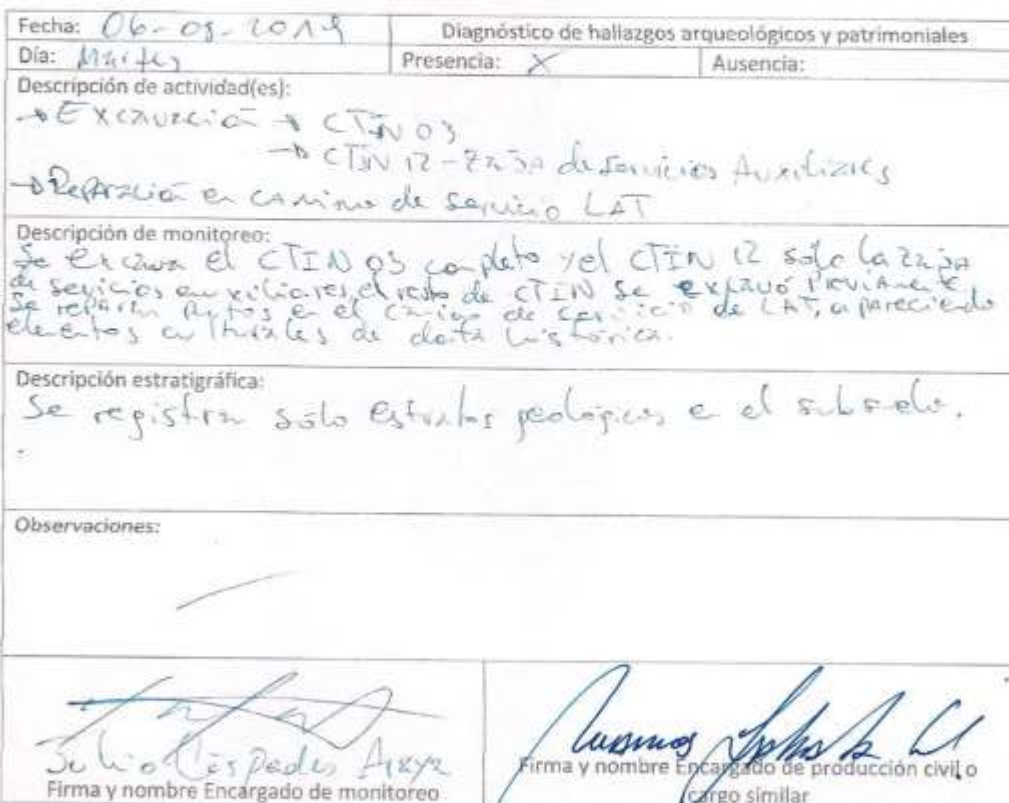 Fecha: 06-08-2019 Diagnóstico de hallazgos arqueológicos y patrimoniales
Día: Martes Presencia: X Ausencia:
Descripción de actividad(es):
→ Excavación → CTIN 03
→ CTIN 12 - Zanja de servicios Auxiliares
→ Reparación en camino de servicio LAT
Descripción de monitoreo:
Se excava el CTIN 03 completo y el CTIN 12 sólo la zanja
de servicios auxiliares, el resto de CTIN se excavó previamente
Se reparan puntos en el camino de servicio de LAT, apareciendo
elementos culturales de data histórica.
Descripción estratigráfica:
Se registran sólo estratos geológicos en el subsuelo.
Observaciones:
Julio Céspedes Araya
Firma y nombre Encargado de monitoreo
Firma y nombre Encargado de producción civil o
cargo similar